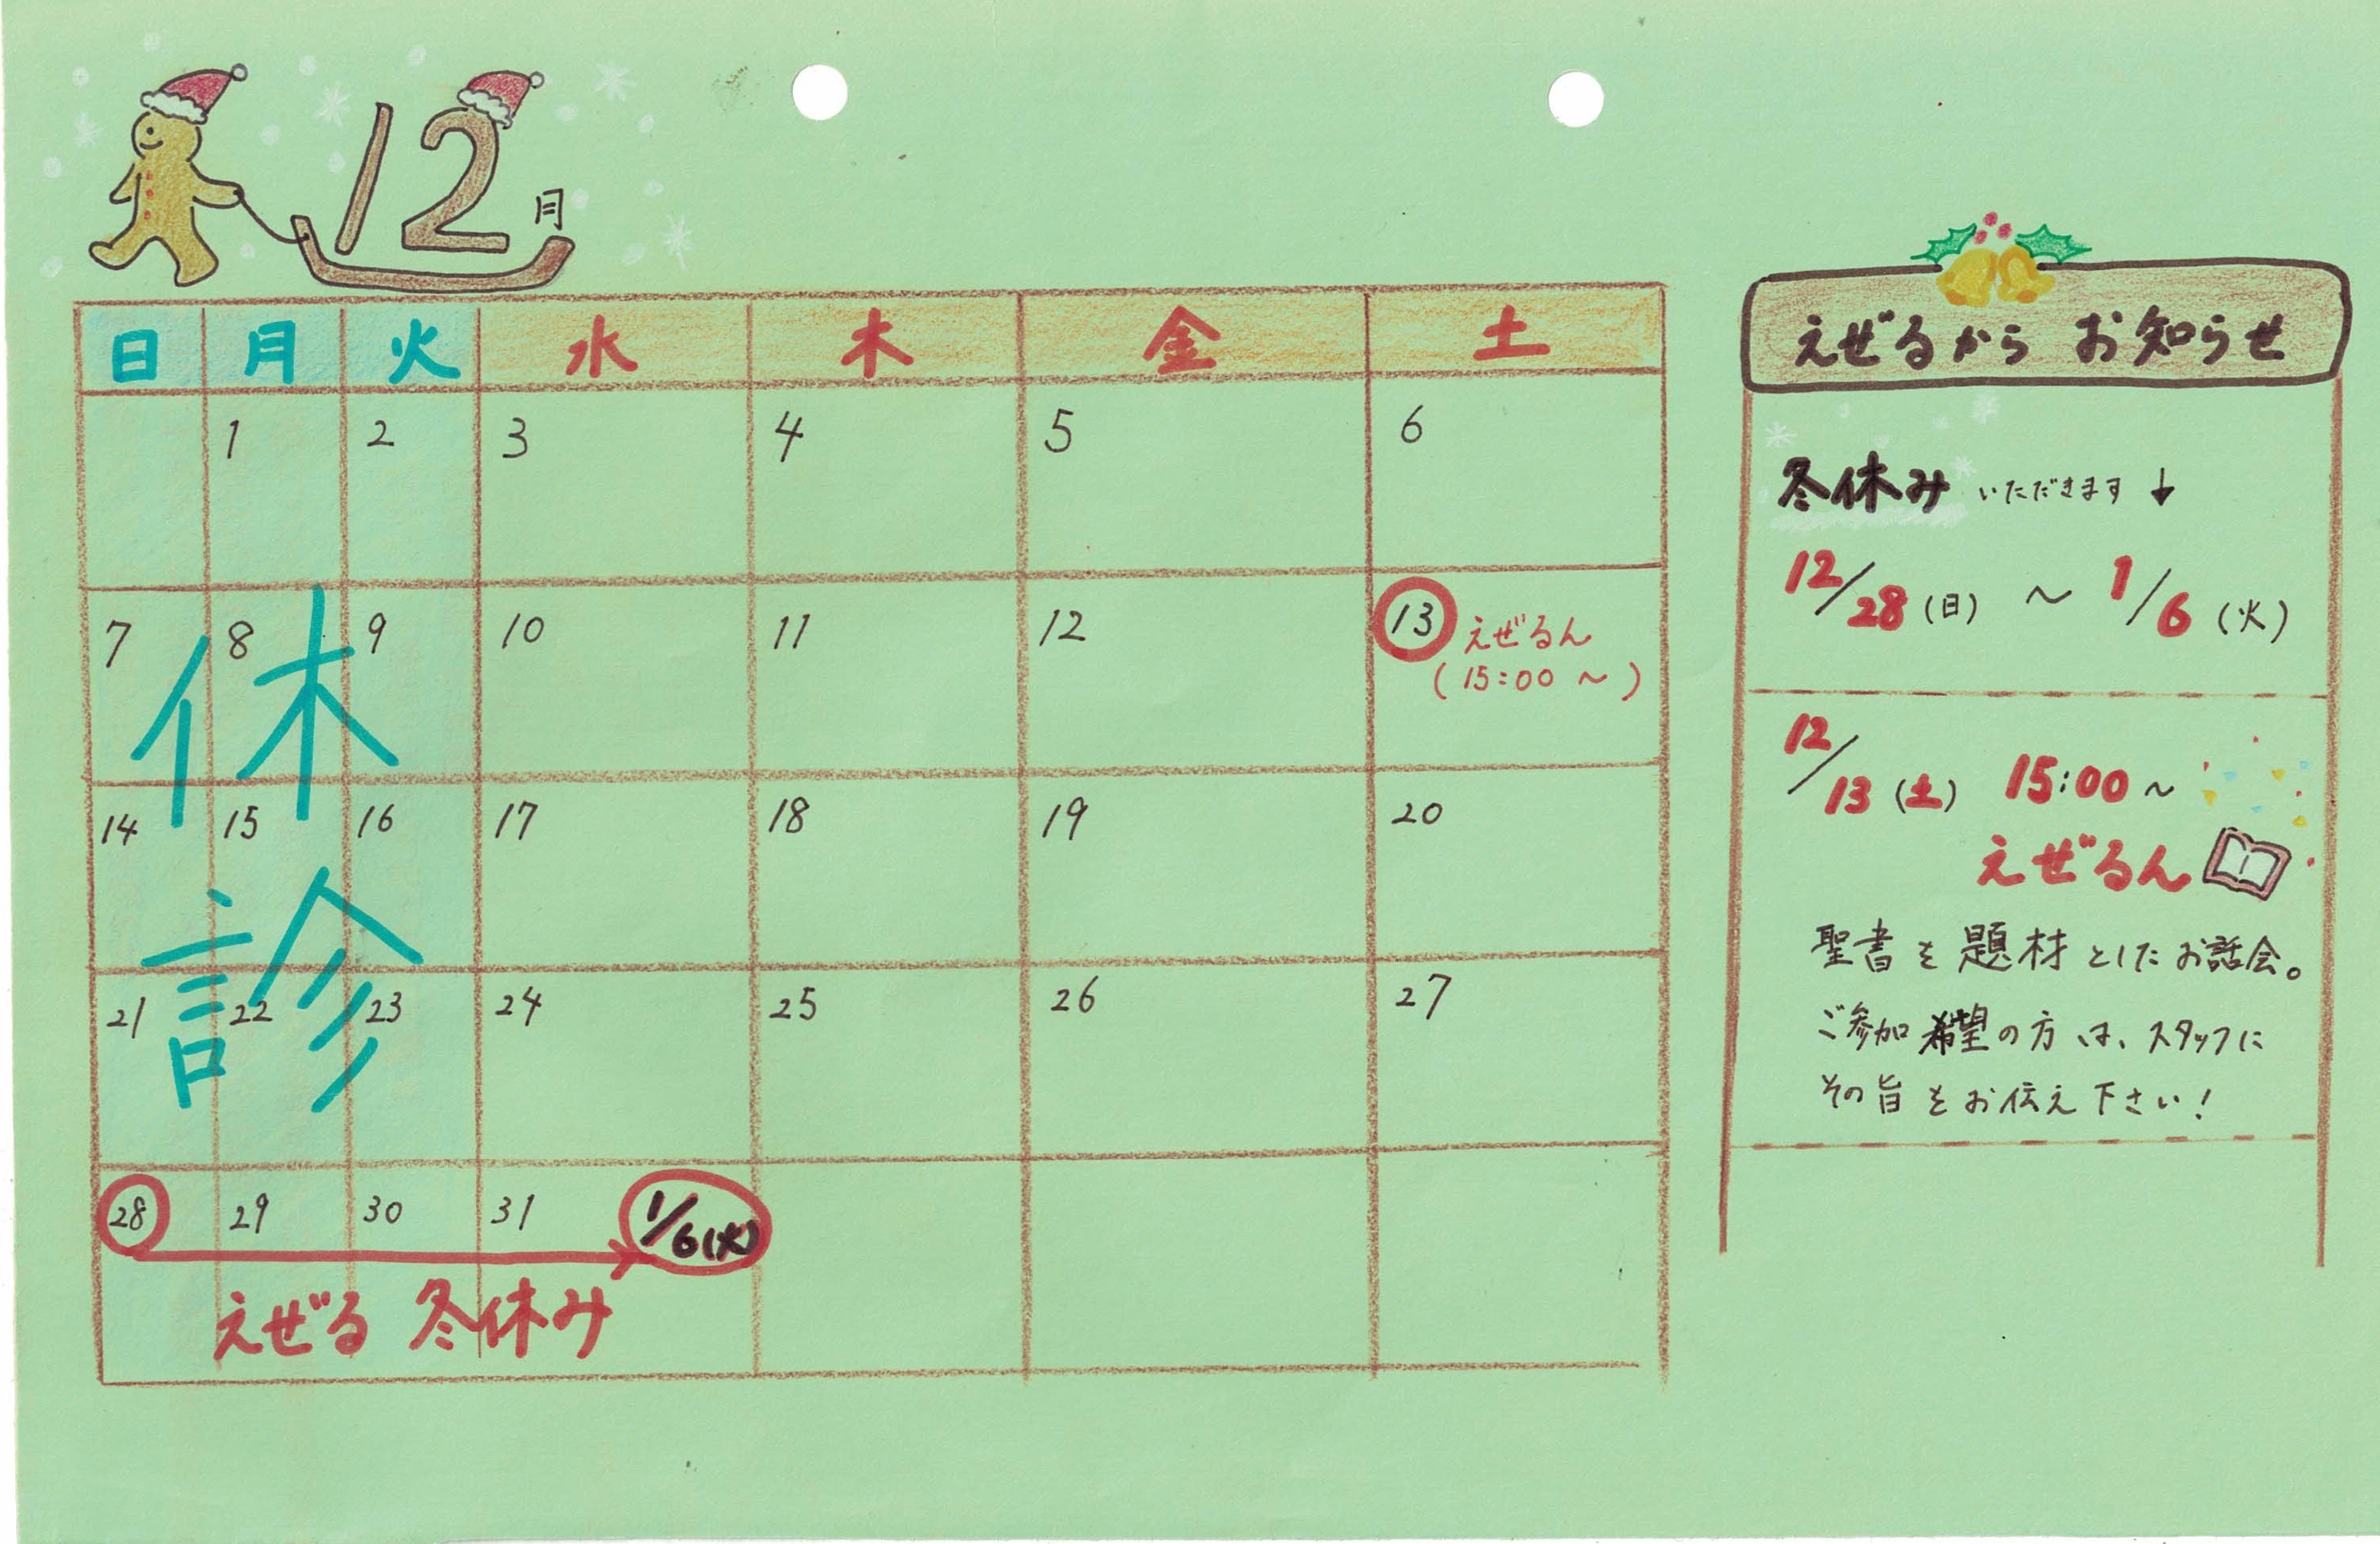 12月
日 月 火 水 木 金 土
1 2 3 4 5 6
7 8 9 10 11 12 13 えぜるん
(15:00 〜)
休診
14 15 16 17 18 19 20
21 22 23 24 25 26 27
28 29 30 31 1/6(火)
えぜる 冬休み
えぜるから お知らせ
冬休み いただきます ↓
12/28 (日) 〜 1/6 (火)
12/13 (土) 15:00 〜
えぜるん
聖書を題材としたお話会。
ご参加希望の方は、スタッフに
その旨をお伝え下さい!